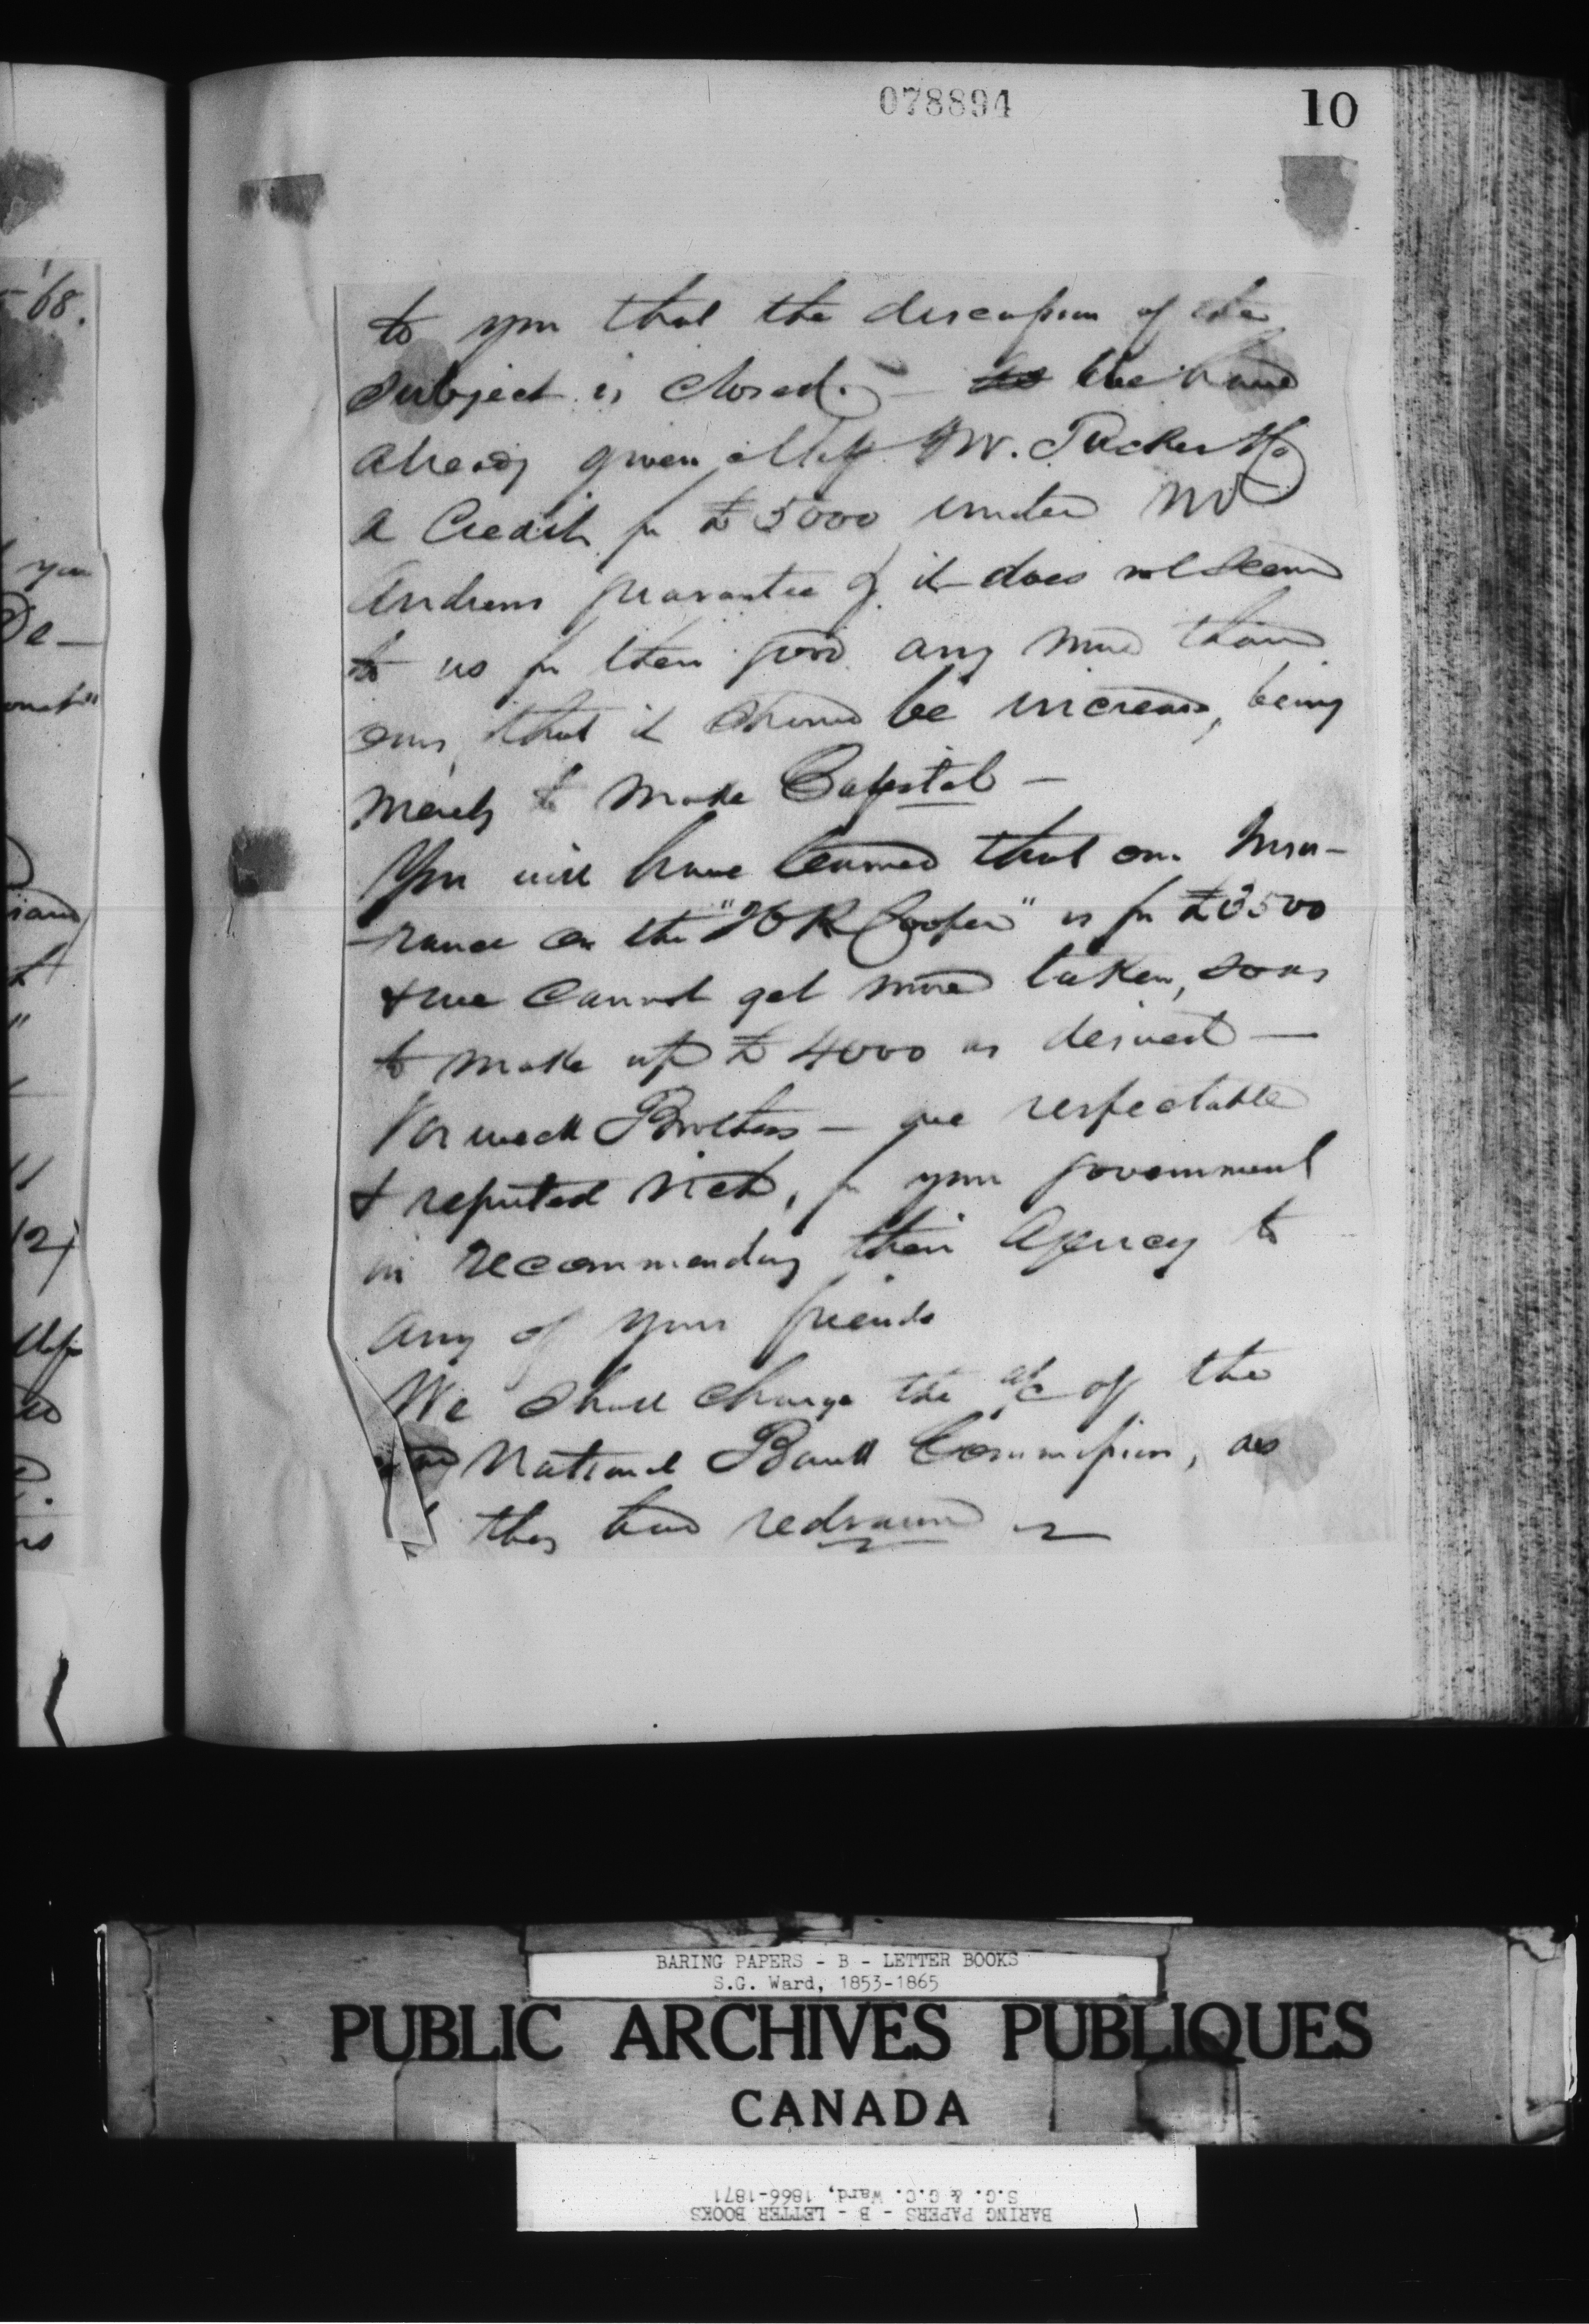 078894
10
to you that the discussion of the
subject is closed. - We have
already given Messrs W. Tucker & Co
a Credit for £5000 under Mr
Andrews guarantee & it does not seem
to us for their good any more than
ours, that it should be increased, being
merely to make Capital -
You will have learned that our Insu-
rance on the "H R Cooper" is for £3500
& we cannot get more taken, so as
to make up £4000 as desired -
Brothers - are respectable
& reputed rich, for your government
in recommending their Agency to
any of your friends
We shall charge the a/c of the
National Bank Commission, as
they have redrawn
'68.
you
De-
12)
BARING PAPERS - B - LETTER BOOKS
S.G. Ward, 1853-1865
PUBLIC ARCHIVES PUBLIQUES
CANADA
BARING PAPERS - B - LETTER BOOKS
S.G. & G.C. Ward, 1866-1871